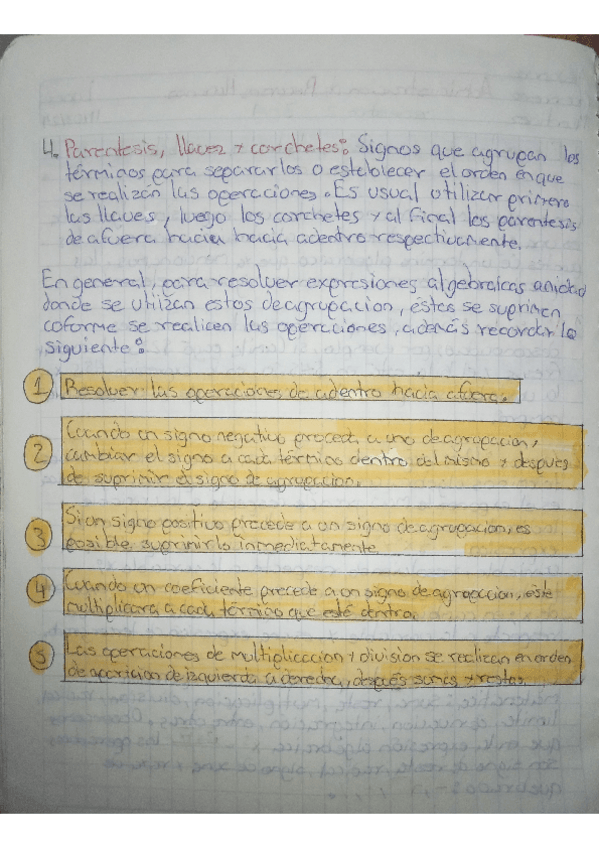 4. Parentesis, llaves y corchetes: Signos que agrupan los
términos para separarlos o establecer el orden en que
se realizan las operaciones. Es usual utilizar primero
las llaves, luego los corchetes y al final los parentesis
de afuera hacia hacia adentro respectivamente.
En general, para resolver expresiones algebraicas
donde se utilizan estos de agrupacion, éstos se suprimen
coforme se realicen las operaciones, además recordar lo
siguiente:
1 Resolver las operaciones de adentro hacia afuera.
2 Cuando un signo negativo preceda a uno de agrupacion,
cambiar el signo a cada término dentro del mismo y después
de suprimir el signo de agrupacion.
3 Si un signo positivo precede a un signo de agrupacion, es
posible suprimirlo inmediatamente
4 Cuando un coeficiente precede a un signo de agrupacion, éste
multiplicara a cada término que esté dentro.
5 Las operaciones de multiplicacion y division se realizan en orden
de aparicion de izquierda a derecha, después sumas y restas.